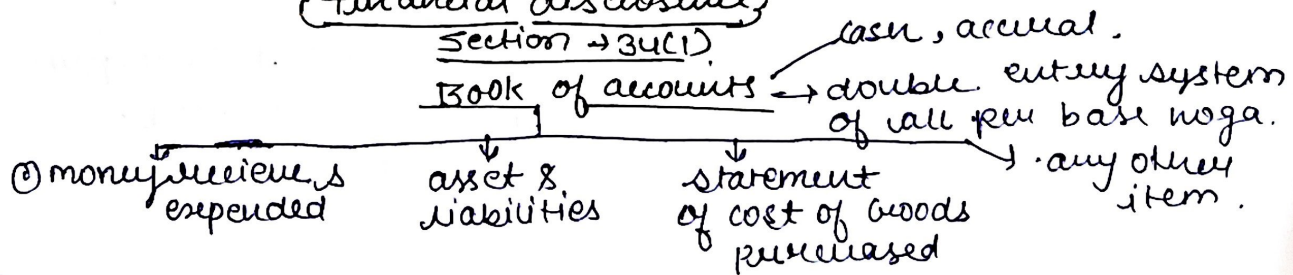 Financial disclosure
Section → 34(1)
Book of accounts
cash, accrual.
→ double entry system
of all per base hoga.
① money recieve &
expended
asset &
liabilities
statement
of cost of Goods
purchased
any other
item.